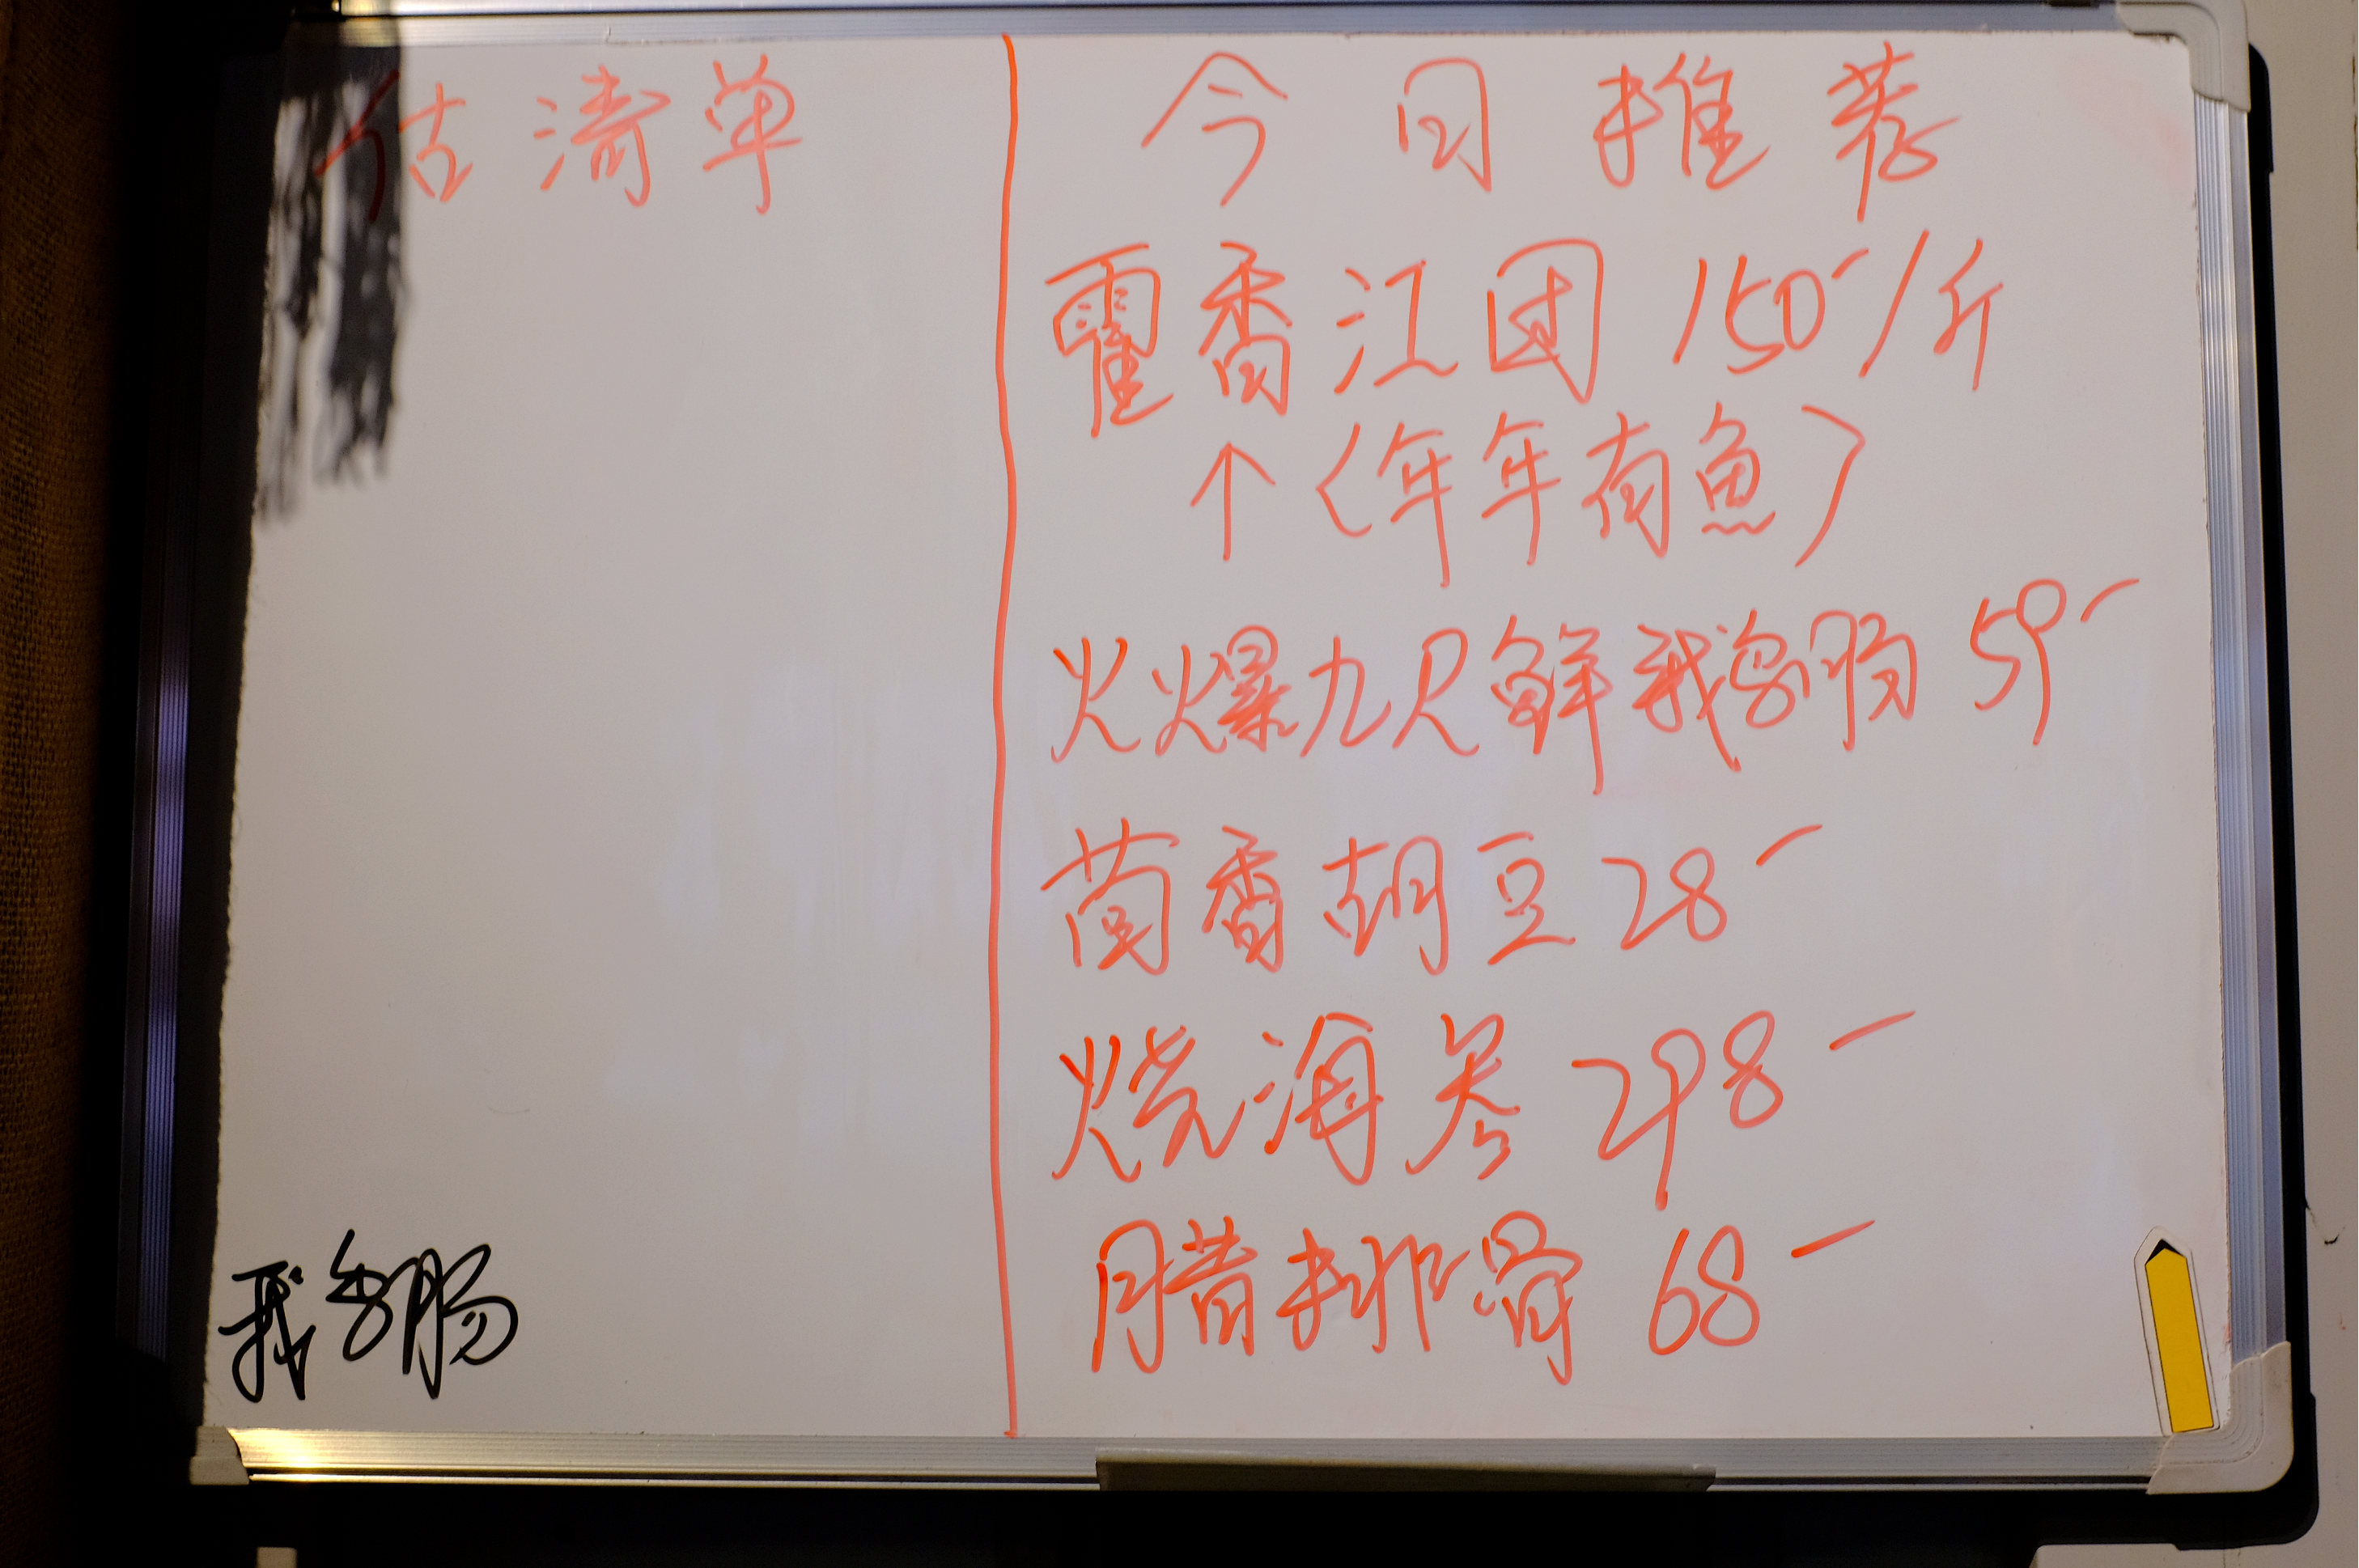 估清单
鹅肠
今日推荐
霍香江团 150-/斤
↑(年年有鱼)
火爆九尺鲜鹅肠 59-
茴香胡豆 28-
烧海参 298-
腊排骨 68-